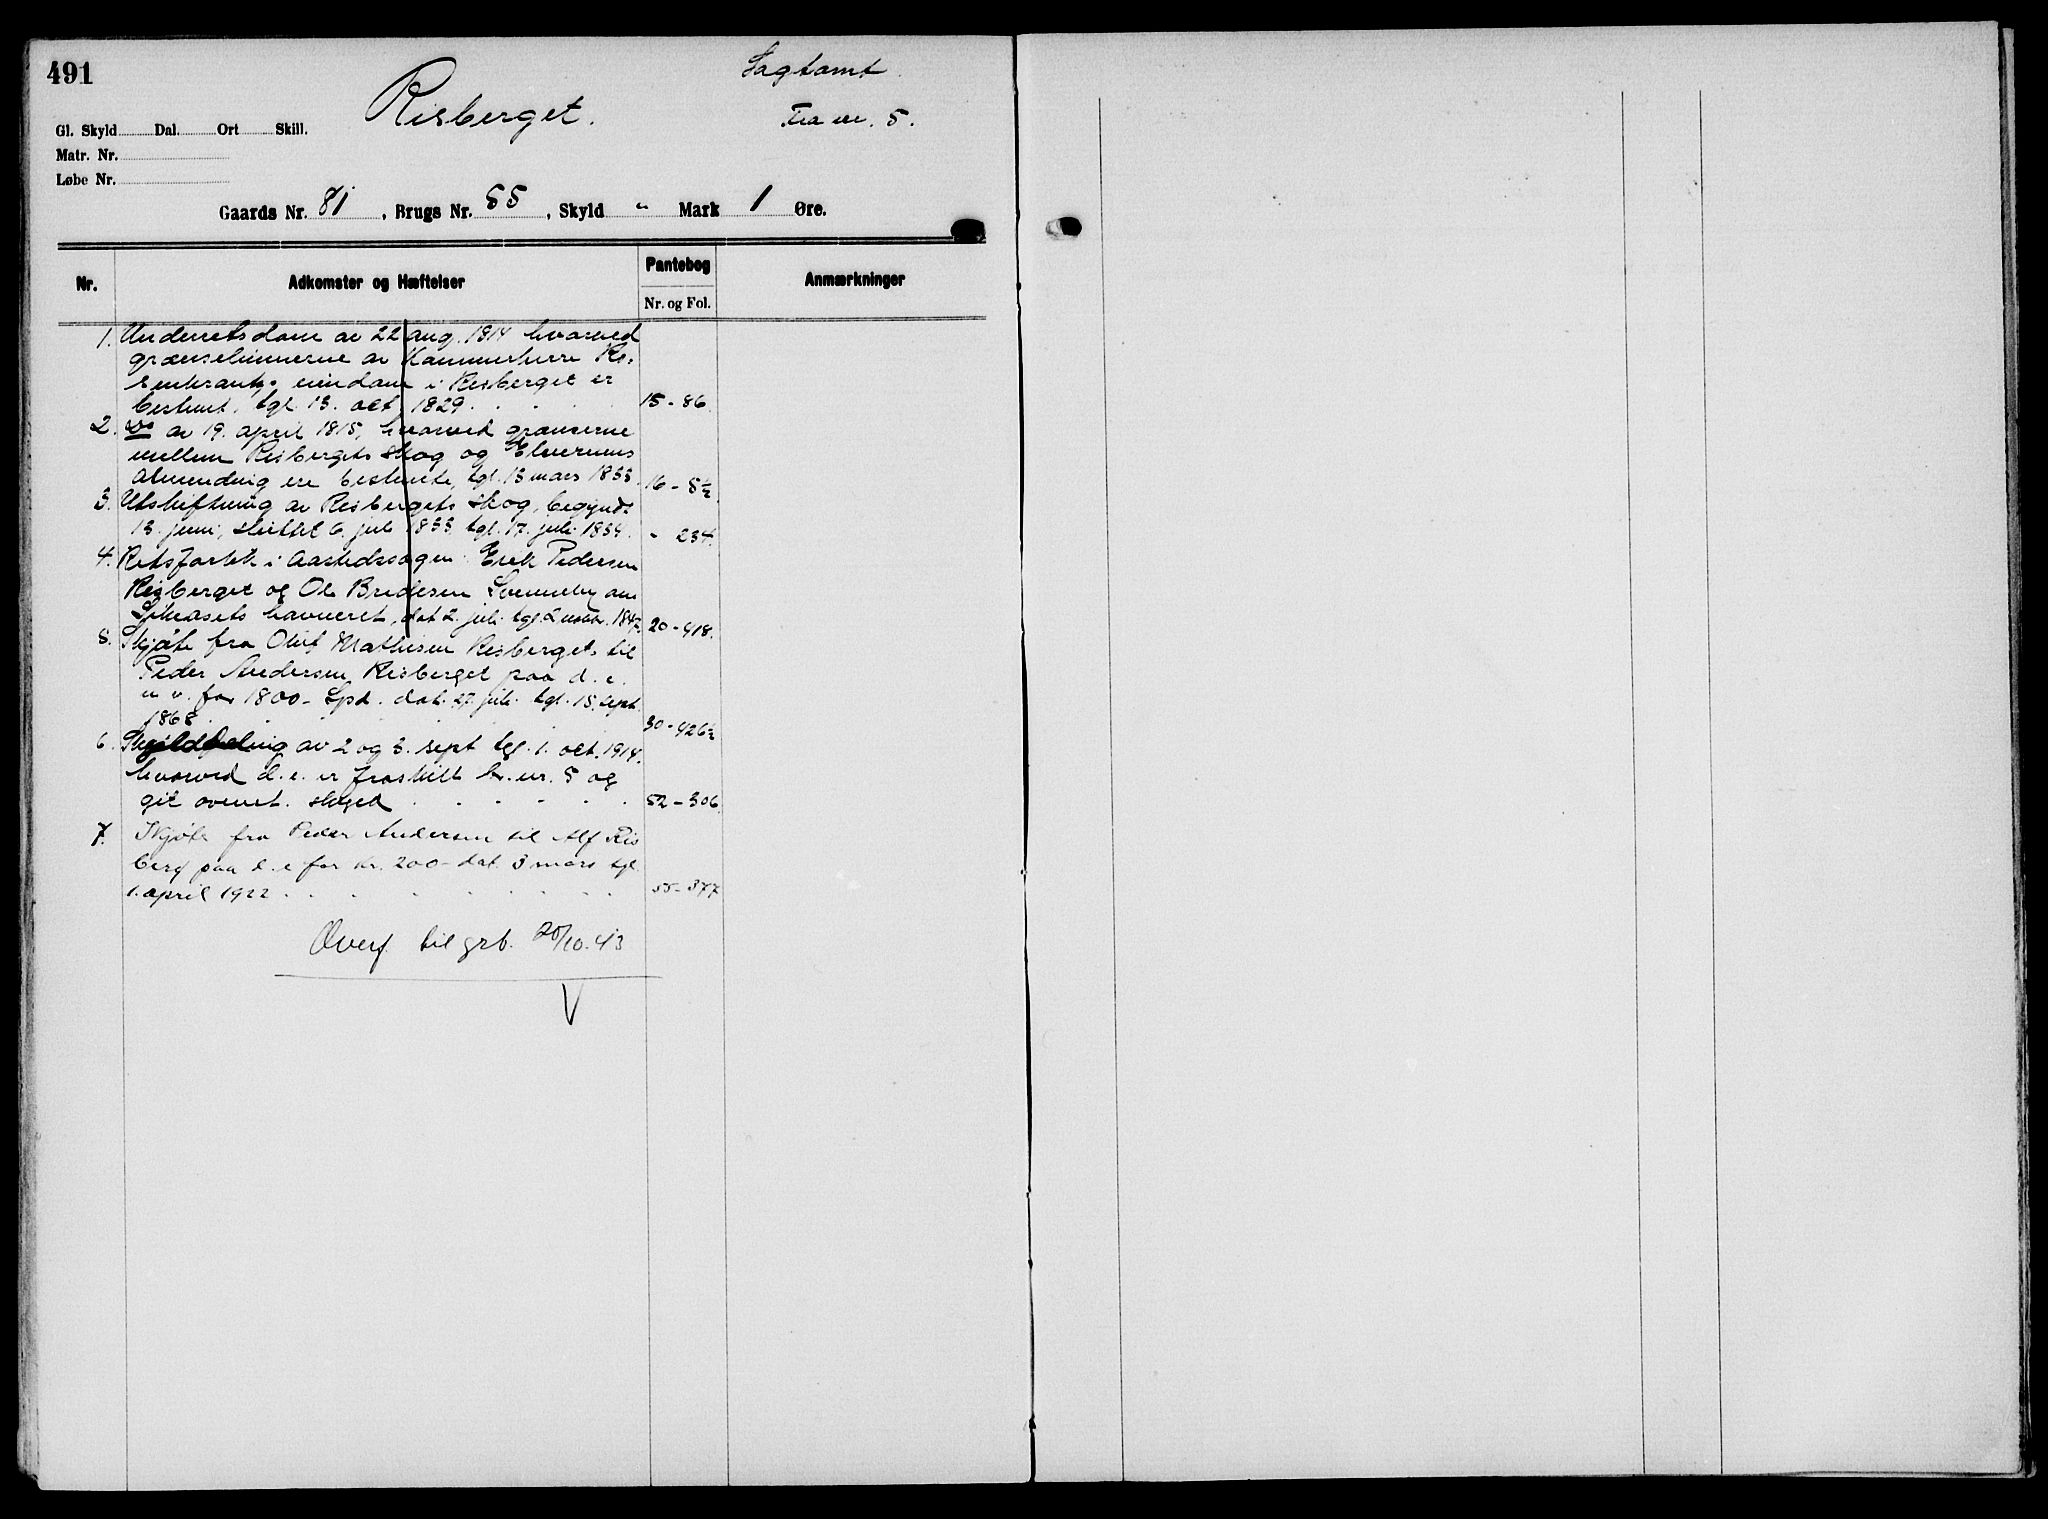 491
Risberget.
Sagtomt.
Fra nr. 5.
Gl. Skyld Dal. Ort Skill.
Matr. Nr.
Løbe Nr.
Gaards Nr. 81, Brugs Nr. 55, Skyld " Mark 1 Øre.
Nr. Adkomster og Hæftelser Pantebog Nr. og Fol. Anmærkninger
1. Underretsdom av 22 aug. 1814 hvorved
grænselinnerne av Kammerherre Ro-
senkrantz eiendom i Risberget er
bestemt, tgl. 13. okt. 1829. 15-86.
2. Do av 19. april 1815, hvorved grænserne
mellem Risbergets skog og Elverums
almending er bestemte, tgl. 13 mars 1833. 16-8½
3. Utskiftning av Risbergets skog, begyndt
13. juni, sluttet 6. juli 1833, tgl. 17. juli 1834. " 234.
4. Retsforlik i aastedssagen Erik Pedersen
Risberget og Ole Bredesen Svenneby om
havneret, dat 2. juli tgl. 2 novbr. 1847. 20-418.
5. Skjøte fra Oluf Mathisen Risberget til
Peder Andersen Risberget paa d. e.
m. v. for 1800 Spd. dat. 27. juli tgl. 15. sept.
1868. 30-426½
6. Skylddeling av 2 og 3. sept tgl. 1. okt. 1914.
hvorved d. e. er fraskilt br. nr. 5 og
git ovennt. skyld 52-306.
7. Skjøte fra Peder Andersen til Alf Ris
berg paa d. e for kr. 200 - dat. 3 mars tgl.
1. april 1922 55-377
Overf. til grb. 20/10.43
V